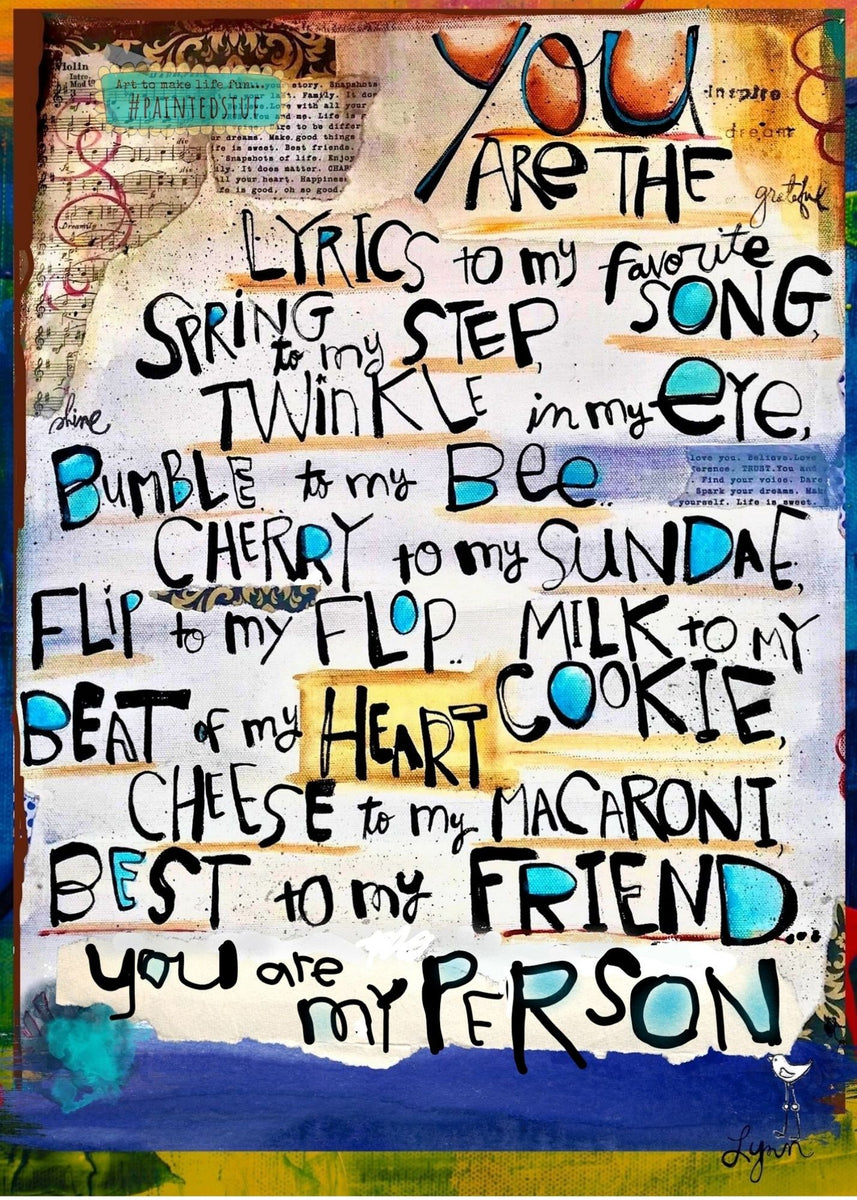 Violin
Intro.
Mod to
Art to make life fun...
#PAINTEDSTUF
your story. Snapshots
Family. It doe
Love with all your
and me. Life is
are to be differ
ur dreams. Make good things
fe is sweet. Best friends.
Snapshots of life. Enjoy
ily. It does matter.
all your heart. Happiness
fe is good, oh so good
Dreamily
YOU
Inspire
dream
ARE THE
grateful
LYRICS to my favorite
SONG,
SPRING
to my STEP,
TWINKLE in my eye,
shine
BUMBLE to my Bee..
love you. Believe. Love
erence. TRUST. You and
. Find your voice. Dare
Spark your dreams. Mak
yourself. Life is sweet.
CHERRY to my SUNDAE,
FLIP to my FLOP.. MILK to MY
COOKIE,
BEAT of my HEART
CHEESE to my MACARONI,
BEST to my FRIEND...
you are
my PERSON
Lynn